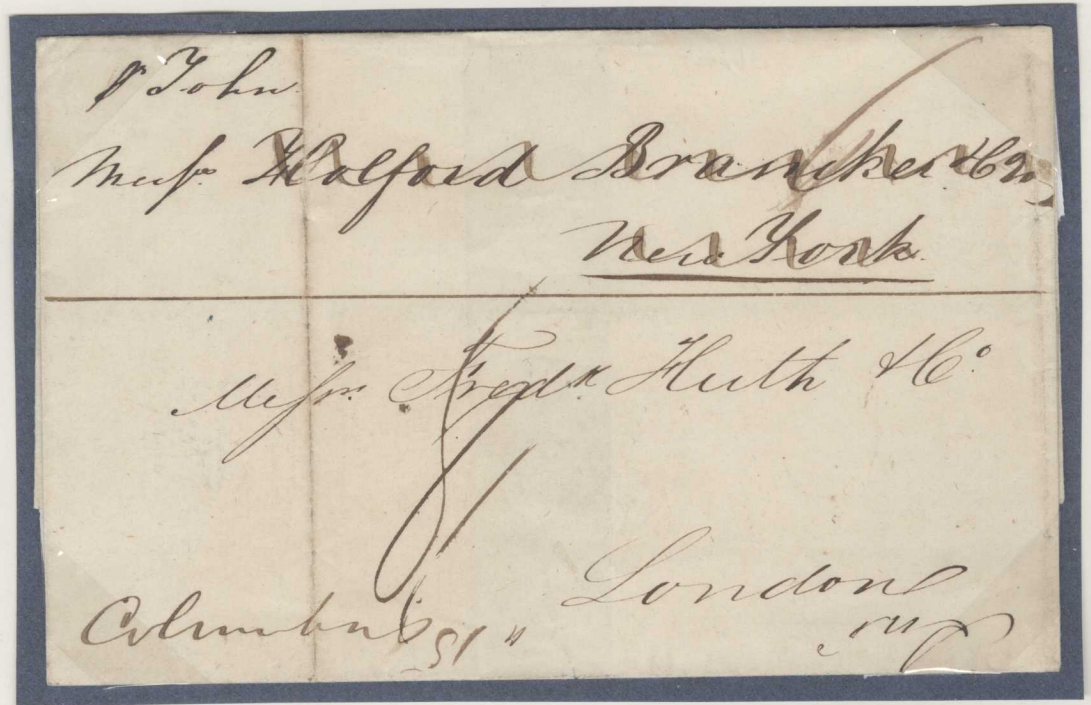 pr John
Messrs Holford Brancker & Co
New York
Messrs Fredk Huth & Co
London
Columbus